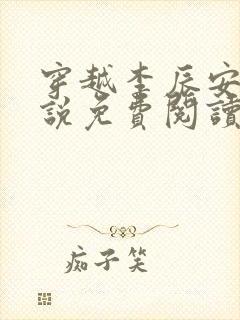 穿越李辰安
說免費閱讀
痴子笑